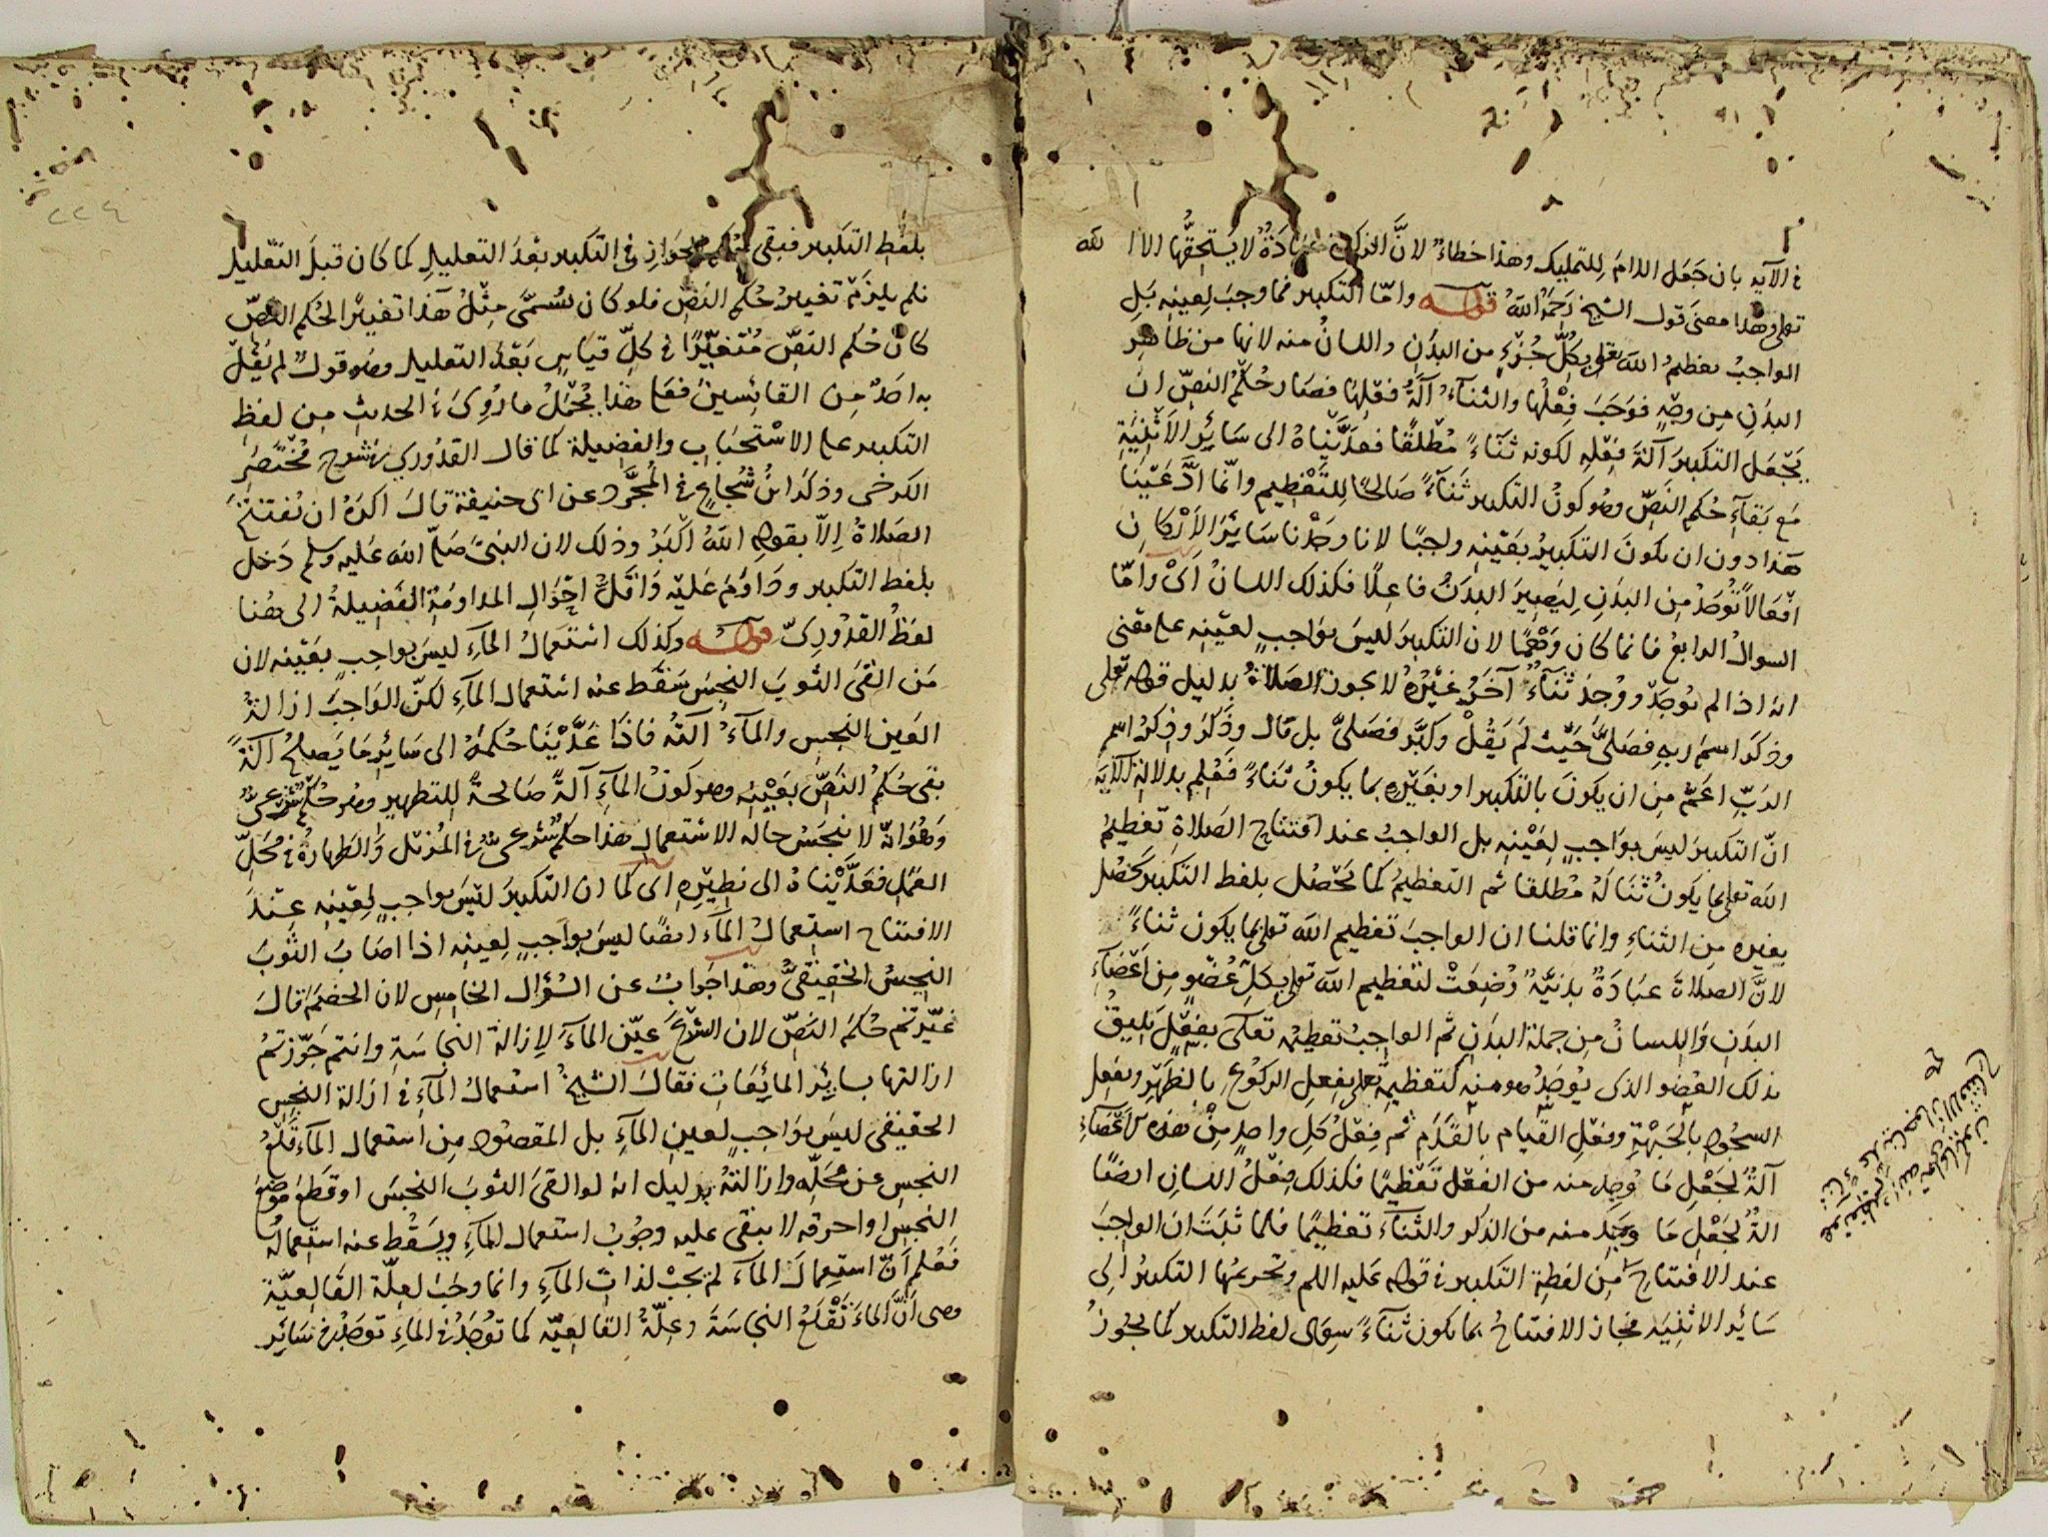 في الآيه بان جَعَل اللامَ لِلتمليك وهذا خطاءٌ لانَّ الزكوة عبَادَةٌ لا يَستَحِقُّها الا الله
تعلى وهذا معنى قول الشيخ رَحمَهُ اللهُ قوله وامّا التكبير فما وجبَ لِعينِه بَلِ
الواجبُ تعظيمُ الله تعلى بكُلِّ جُزءٍ من البدَنِ واللسانُ منه لانها من ظاهِرِ
البدَنِ مِن وجْهٍ فوَجَبَ فِعْلُها والثناءُ آلَةُ فِعْلِهَا فصَارحُكْمُ النصِّ انْ
يَجْعَل التكبيرَ آلَةَ فِعْلِهِ لكونه ثَنَاءً مُطْلَقًا فعدَّيْناهُ الى سَائِرِ الاَثْنِيَةِ
مَع بَقآءِ حُكم النَصِّ وهو كونُ التكبير ثَنَآءً صَالحًا لِلتَّعْظِيم وانّما ادَّعَيْنَا
هَذا دون ان يكونَ التكبيرُ بعَيْنِه واجبًا لانا وجَدْنا سَائِرَ الاَرْكانِ
افْعَالاً تُوجَدُ مِن البدَنِ لِيَصِيرَ البَدَنُ فاعِلًا فكذلك اللسانُ اىْ وامّا
السوالُ الرابعُ فانما كان وَهْمًا لان التكبيرَ ليسَ بوَاجبٍ لعَيْنِه على معنى
انه اذا لم يُوجَدْ ووُجدَ ثَنَآءٌ آخَرُ غَيْرُهُ لا يجوز الصَلاةُ بدليل قوله تعلى
وذكَر اسمَ ربِهِ فصَلىَّ حَيْث لَم يَقُلْ وكبَّر فصَلىَّ بل قال وذَكَرَ وذِكرُ اسْمِ
الرَبِّ اعَمُّ مِن ان يكونَ بالتكبير او بغَيْرِه بما يكونُ ثَنَاءً فَعُلِم بدلالةِ الآيَة
انّ التكبيرَ ليسَ بوَاجبٍ لِعَيْنِه بل الواجبُ عند افتتاح الصَلاةِ تعظيمُ
الله تعلى بما يكونُ ثَنَالَهُ مُطلقا ثم التعظيمُ كما يَحْصُل بلفظ التكبير يَحْصُل
بغيرِه مِن الثناءِ وانما قلنا ان الواجبَ تعظيم الله تعلى بما يكون ثناءً
لانَّ الصلاةَ عبَادَةٌ بدَنيَّةٌ وُضِعَتْ لتعظيم الله تعلى بكلِّ عُضْوٍ مِن اَعْضَآءِ
البدَنِ وَاللسانُ مِن جملة البدَنِ ثم الواجِبُ تعظيمُه تعَلى بفِعْلٍ يَليقُ
بذلك العُضْوِ الذى يُوجَدُ هو منه كتعظيمِه تعلى بفِعلِ الركوعِ بالظَهْرِ وبفعلِ
السجُودِ بالجَبْهَةِ وفعْلِ القيام بالقَدَمِ ثم فِعْلُ كلِ واحِدٍ مِنْ هذه الاَعْضآءِ
آلةٌ لجَعْلِ مَا وُجِد منه من الفعْل تعْظِيْمًا فكذلك فِعْلُ اللسانِ ايضًا
الةٌ لجَعْلِ مَا وُجِد منه من الذكر والثنَآء تعظِيمًا فلما ثَبَتَ ان الواجبَ
عند الافتتاح مِن لفظةِ التكبير في قوله عَليه السلم وتحريمُها التكبيرُ الى
سَائِر الاثنِيَه فجاز الافتتاحُ بما يكون ثنَآءً سِوى لفظ التكبير كما يجُوزُ
بلفظِ التكبير فبقي حُكم الجوازِ في التكبير بَعْدَ التعليلِ كما كان قبلَ التعْليلِ
فلم يلزَمْ تغييرُ حُكم النَصِّ فلو كان يُسَمَّى مِثْلُ هَذا تغييرًا لحُكم النصِّ
كانَ حُكم النصِّ مُتَغيِّرًا في كلِّ قيَاسٍ بَعْدَ التعليل وهو قولٌ لم يَقُلْ
به احَدٌ مِن القائسينَ فعَلى هَذا يُحْمَلُ ما رُوِىَ في الحديثِ مِن لفظِ
التكبير على الاسْتحبَابِ والفضيلة كما قال القدُوري في شرح مُخْتَصَرِ
الكرخى وذكَر ابْنُ شُجاعٍ في المُجَرَّدِ عن ابى حنيفة قالَ اكرَهُ ان تُفتَتَحَ
الصَلاةُ اِلاّ بقولِهِ اللهُ اكْبَرُ وذلك لان النبىَّ صَلّى الله عَليه وسلم دَخل
بلفظ التكبير ودَاوَمَ عَليْه وَاَقَلُّ احْوَالِ المداومَةِ الفَضِيلةُ الى هُنا
لفظُ القدُورِىّ قوله وكذلك اسْتعمَالُ المآءِ ليسَ بواجبٍ بعَيْنِه لان
مَن القَى الثوبَ النجِسَ سَقَط عنه اسْتعمال المآءِ لكنّ الوَاجبَ ازالَةُ
العَينِ النجِسِ والمآءُ آلتُه فاذَا عَدَّيْنَا حُكمهُ الى سَائِرِ مَا يَصلحُ آلَةً
بقى حُكمُ النَصِّ بعَيْنِه وهو كونُ المآءِ آلةً صَالحةً للتطهيرِ وهو حُكمٌ شرْعىٌّ
وَهُوَ انّه لا ينجَسُ حالَه الاستعمالِ هذا حكمٌ شَرعىٌّ في المُزيل والطهارةُ في مَحَلِّ
العَمَلِ فعَدَّيْنَاهُ الى نظِيْرِه اى كما ان التكبيرَ ليْسَ بواجبٍ لِعَيْنِه عِنْدَ
الافتتاح استعمالُ المآء ايضًا ليسَ بوَاجبٍ لعينِه اذا اصَابَ الثوبَ
النجِسُ الحقيقىُّ وهَذا جَوابٌ عن السُؤَال الخامِسِ لان الخصْمَ قالَ
غيّرتم حُكمَ النصِّ لان الشَرْعَ عَيّن المآءَ لاِزالة النجاسَةِ وانتم جَوّزتمُ
ازالتها بسائِرِ المائِعَاتِ فقالَ الشيخُ استعمالُ المآءِ في ازالة النجِس
الحقيقى ليسَ بوَاجبٍ لعينِ المآءِ بل المقصُود مِن استعمال المآءِ قَلْعُ
النجِس عن مَحَلِّه وازالتهُ بدليل انه لو القَى الثوبَ النجسَ او قطَعَ موضِعَ
النجِس او احرقه لا يبقى عليه وجُوبُ استعمال المآءِ ويَسْقُط عنه استعمالُه
فَعُلم اَنّ استعمالَ المآءِ لم يجبْ لذات المآءِ وانما وجَبَ لعِلّةِ القَالعيَّة
وهى اَنَّ المآءَ تَقْلَعُ النجاسَةَ وعِلّةُ القالعِيَّة كما تُوجَدُ في المآءِ تُوجَدُ في سَائِر
٢٢٤